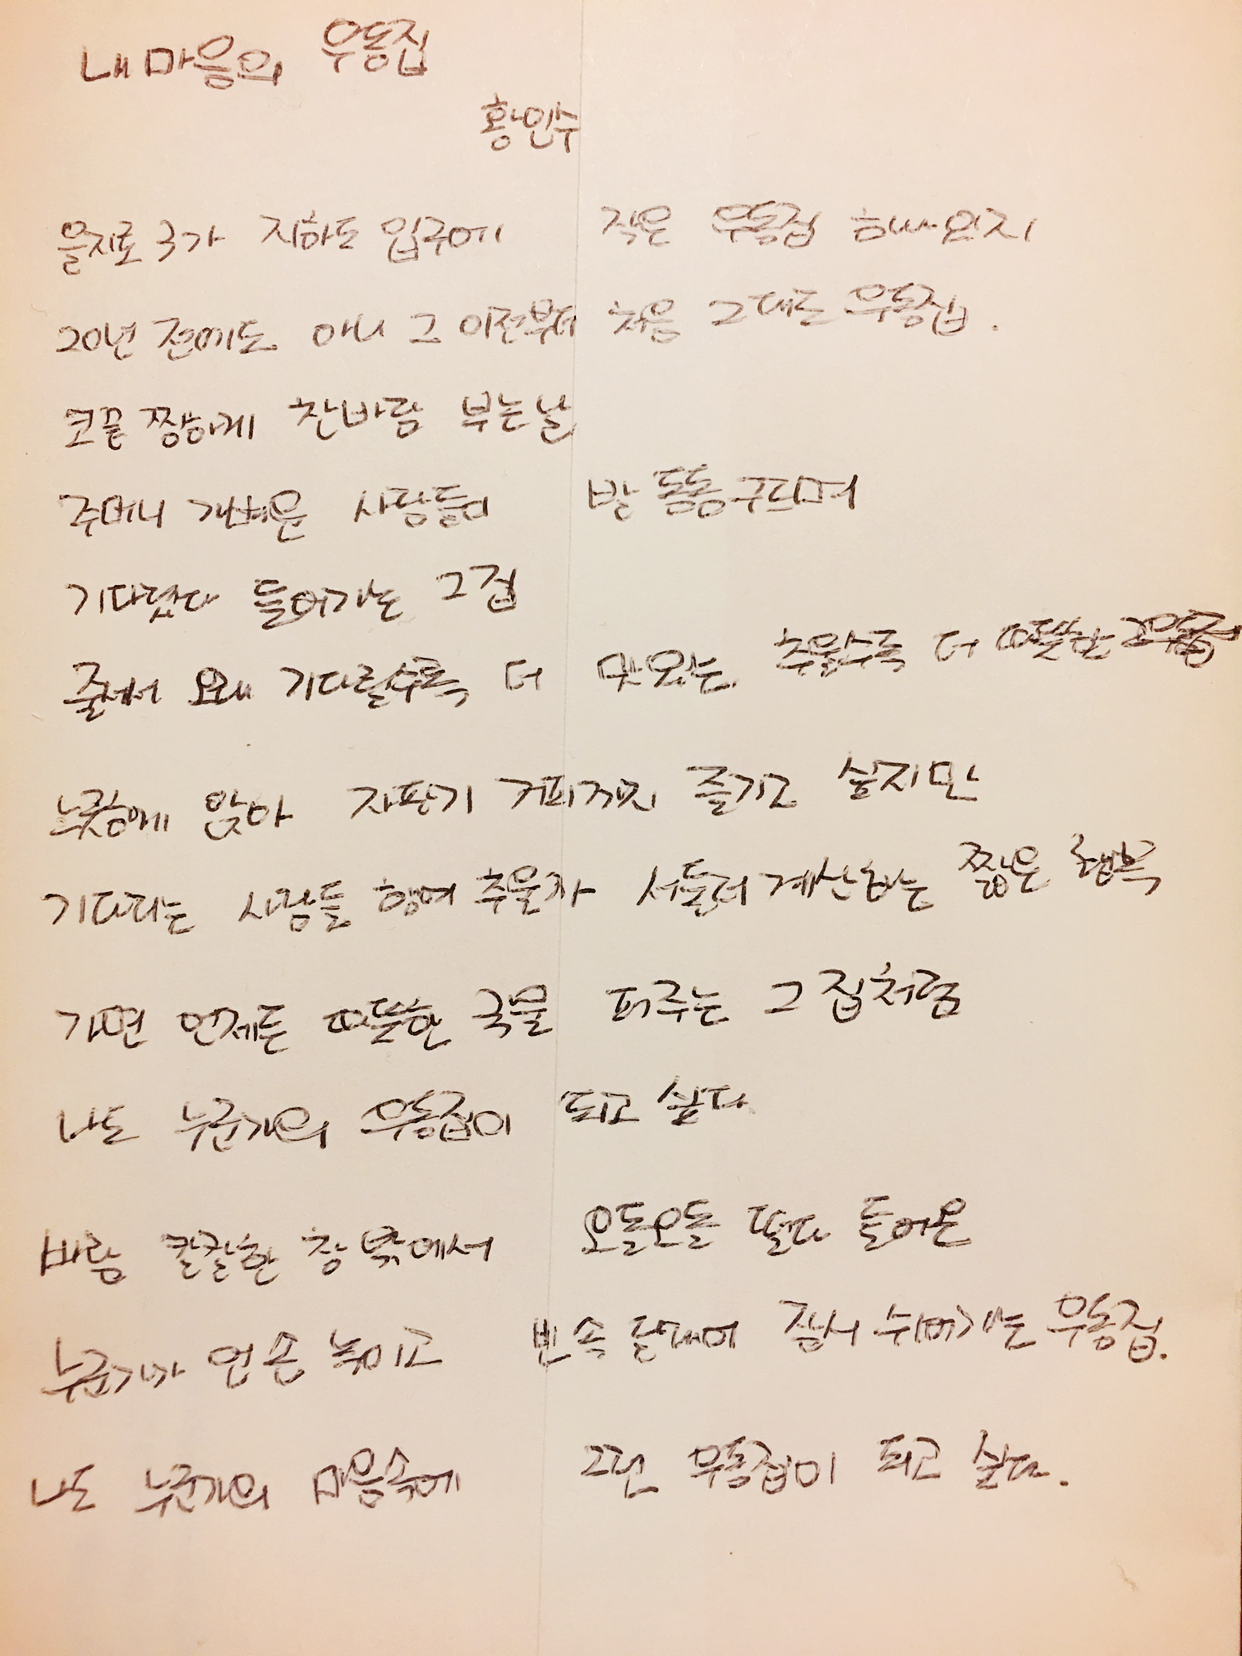 내 마음의 우동집
황인수
을지로 3가 지하도 입구에 작은 우동집 하나 있지
20년 전에도 아니 그 이전부터 처음 그대로 우동집.
코끝 찡하게 찬바람 부는 날
주머니 가벼운 사람들이 발 동동 구르며
기다렸다 들어가는 그 집
줄서서 오래 기다릴수록 더 맛있는 추울수록 더 따뜻한
느긋하게 앉아 자판기 커피까지 즐기고 싶지만
기다리는 사람들 행여 추울까 서둘러 계산하는 짧은 행복
가면 언제든 따뜻한 국물 퍼주는 그 집처럼
나도 누군가의 우동집이 되고 싶다
바람 칼칼한 창 밖에서 오들오들 떨다 들어온
누군가가 언 손 녹이고 빈 속 달래며 잠시 쉬어가는 우동집.
나도 누군가의 마음속에 그런 우동집이 되고 싶다.